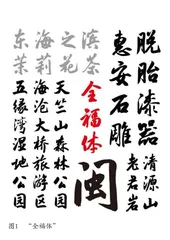 东海之滨
茉莉花茶
脱胎漆器
惠安石雕
全福体
清源山
老君岩
闽
天竺山森林公园
海沧大桥旅游区
五缘湾湿地公园
图1 “全福体”